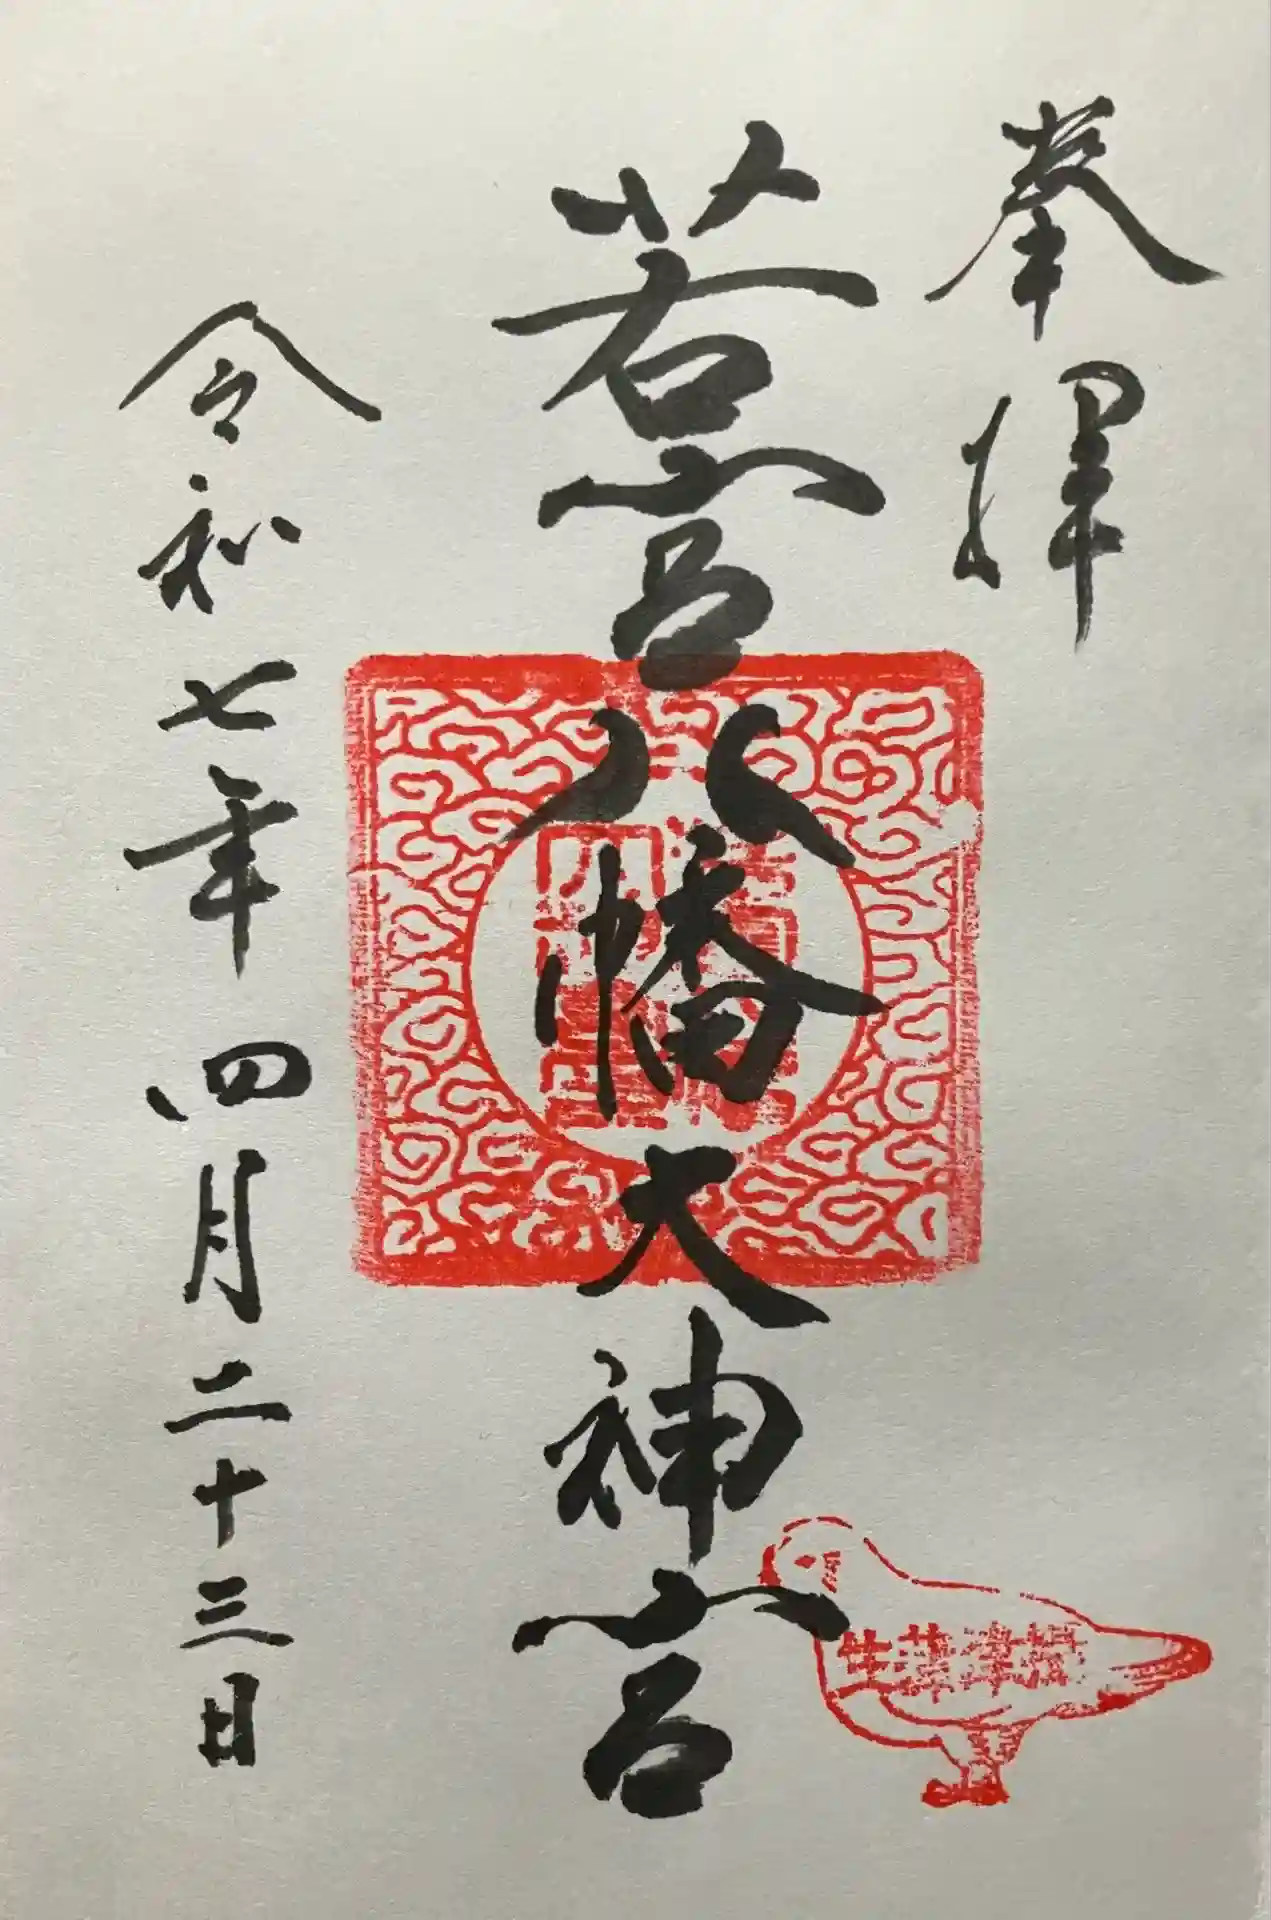 奉拝
若宮八幡大神宮
令和七年四月二十三日